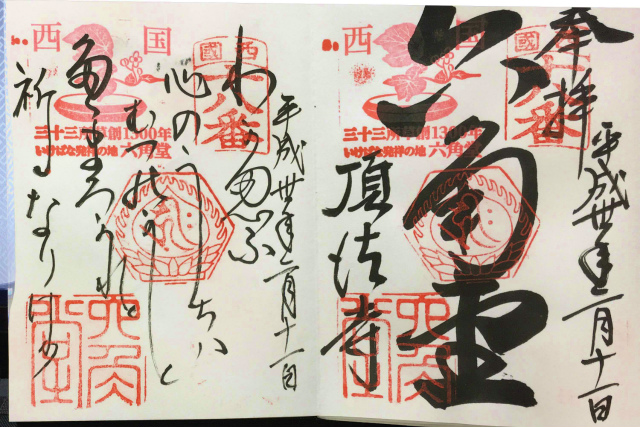 奉拝
平成卅年一月十一日
六角堂
頂法寺
西国
西國
十八番
三十三所草創1300年
いけばな発祥の地 六角堂
六角堂
平成卅年一月十一日
わが思ふ
心のうちハ
むつのかど
祈るなりけり
西国
西國
十八番
三十三所草創1300年
いけばな発祥の地 六角堂
六角堂